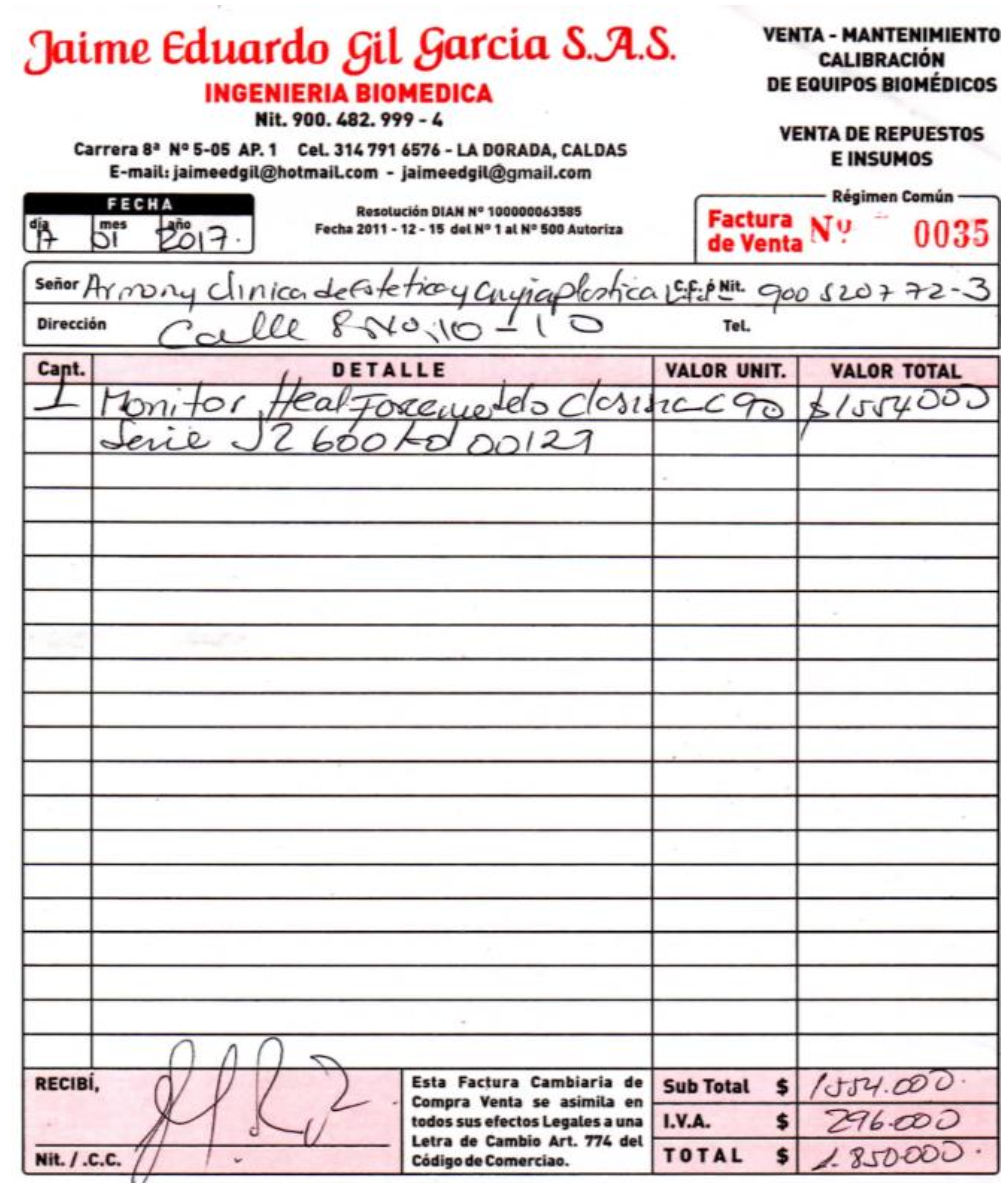 Jaime Eduardo Gil Garcia S.A.S.
INGENIERIA BIOMEDICA
Nit. 900. 482. 999 - 4
Carrera 8ª Nº 5-05 AP. 1 Cel. 314 791 6576 - LA DORADA, CALDAS
E-mail: jaimeedgil@hotmail.com - jaimeedgil@gmail.com
VENTA - MANTENIMIENTO
CALIBRACIÓN
DE EQUIPOS BIOMÉDICOS
VENTA DE REPUESTOS
E INSUMOS
FECHA
día mes año
17 01 2017.
Resolución DIAN Nº 100000063585
Fecha 2011 - 12 - 15 del Nº 1 al Nº 500 Autoriza
Régimen Común
Factura de Venta Nº 0035
Señor Armony clinica de Estetica y Cirujia plastica C.C. ó Nit. 900 520 772-3
Dirección Calle 8 No. 10 - 10 Tel.
Cant. DETALLE VALOR UNIT. VALOR TOTAL
1 Monitor Heal Force C90 $1554000
Serie 00129
RECIBÍ,
Nit. / .C.C.
Esta Factura Cambiaria de
Compra Venta se asimila en
todos sus efectos Legales a una
Letra de Cambio Art. 774 del
Código de Comerciao.
Sub Total $ 1554.000.
I.V.A. $ 296.000
TOTAL $ 1.850.000.